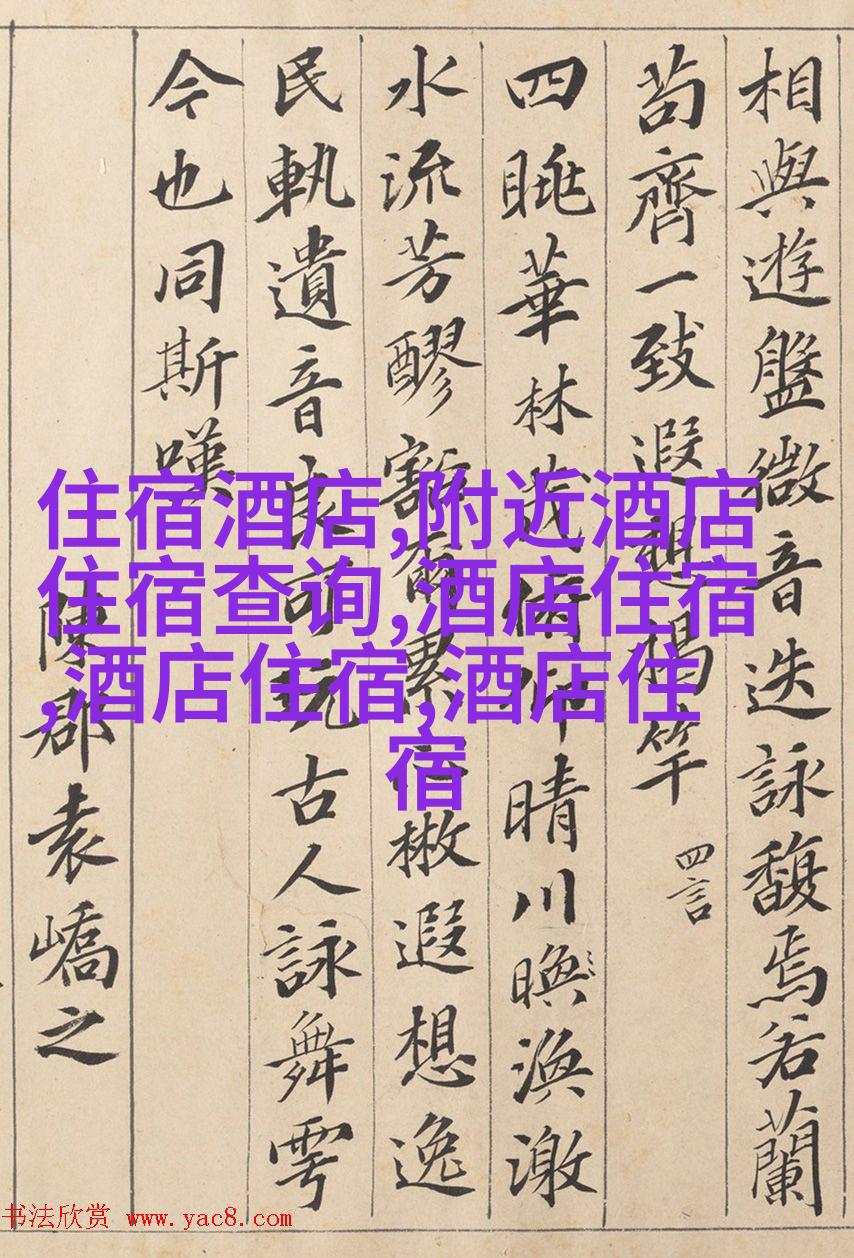 相與遊盤微音迭詠馥焉若蘭
苟齊一致遐想揭竿
四言
四眺華林茂俯仰晴川暎渙激
水流芳醪豁爾累心遐想逸
民軌遺音良可玩古人詠舞雩
今也同斯嘆
陳郡袁嶠之
住宿酒店,附近酒店
住宿查询,酒店住宿
,酒店住宿,酒店住
宿
书法欣赏 www.yac8.com